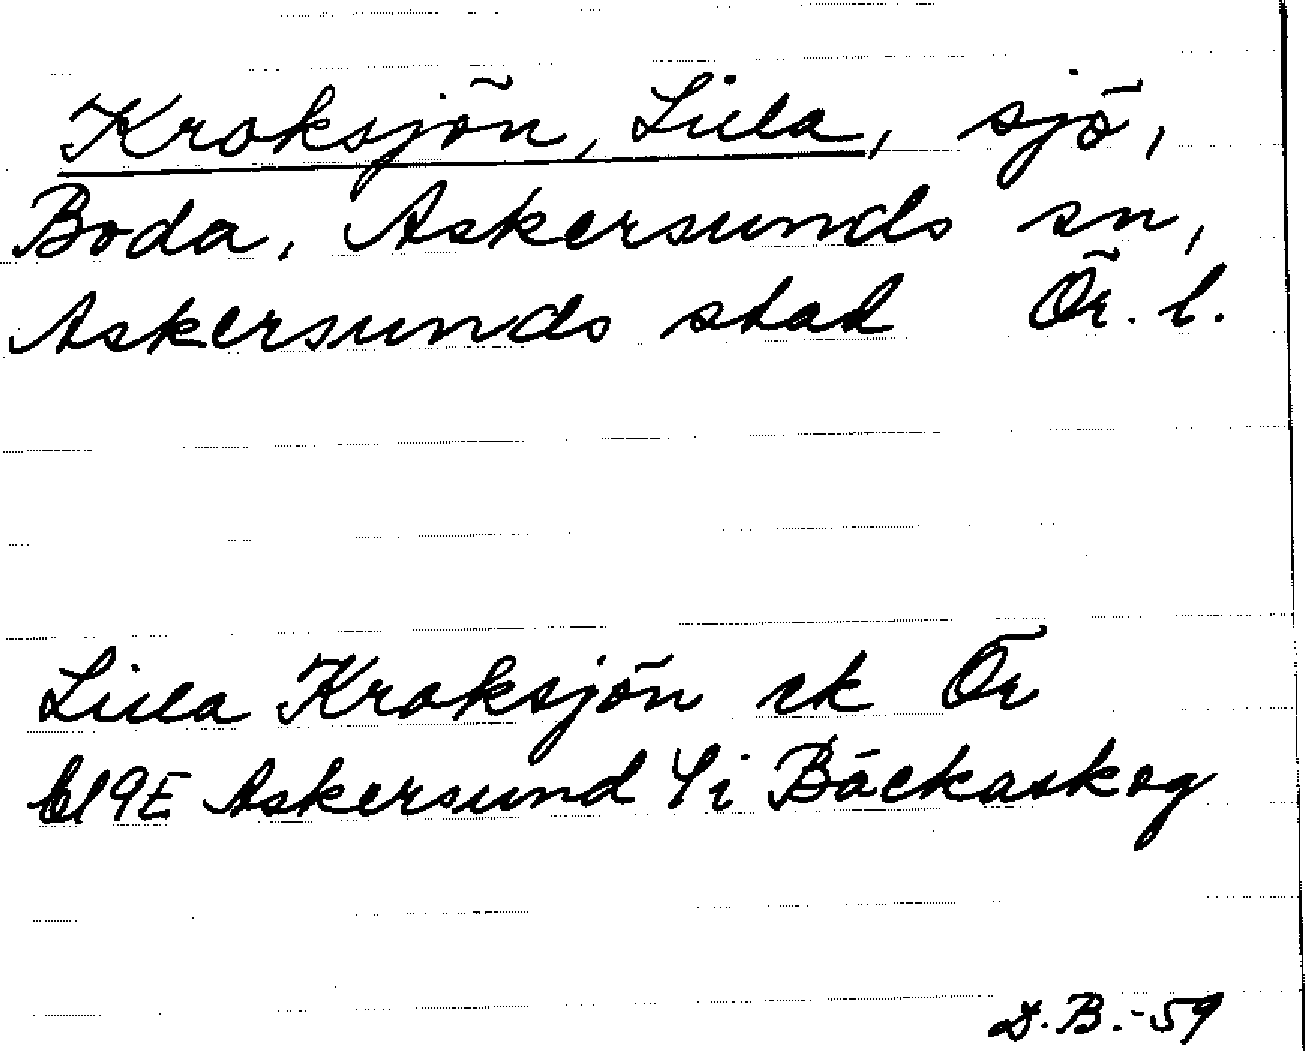 Kroksjön, Lilla, sjö,
Boda, Askersunds sn,
Askersunds stad Ör. l.
Lilla Kroksjön ek Ör
19E Askersund 4i Bäckaskog
D.B.-59